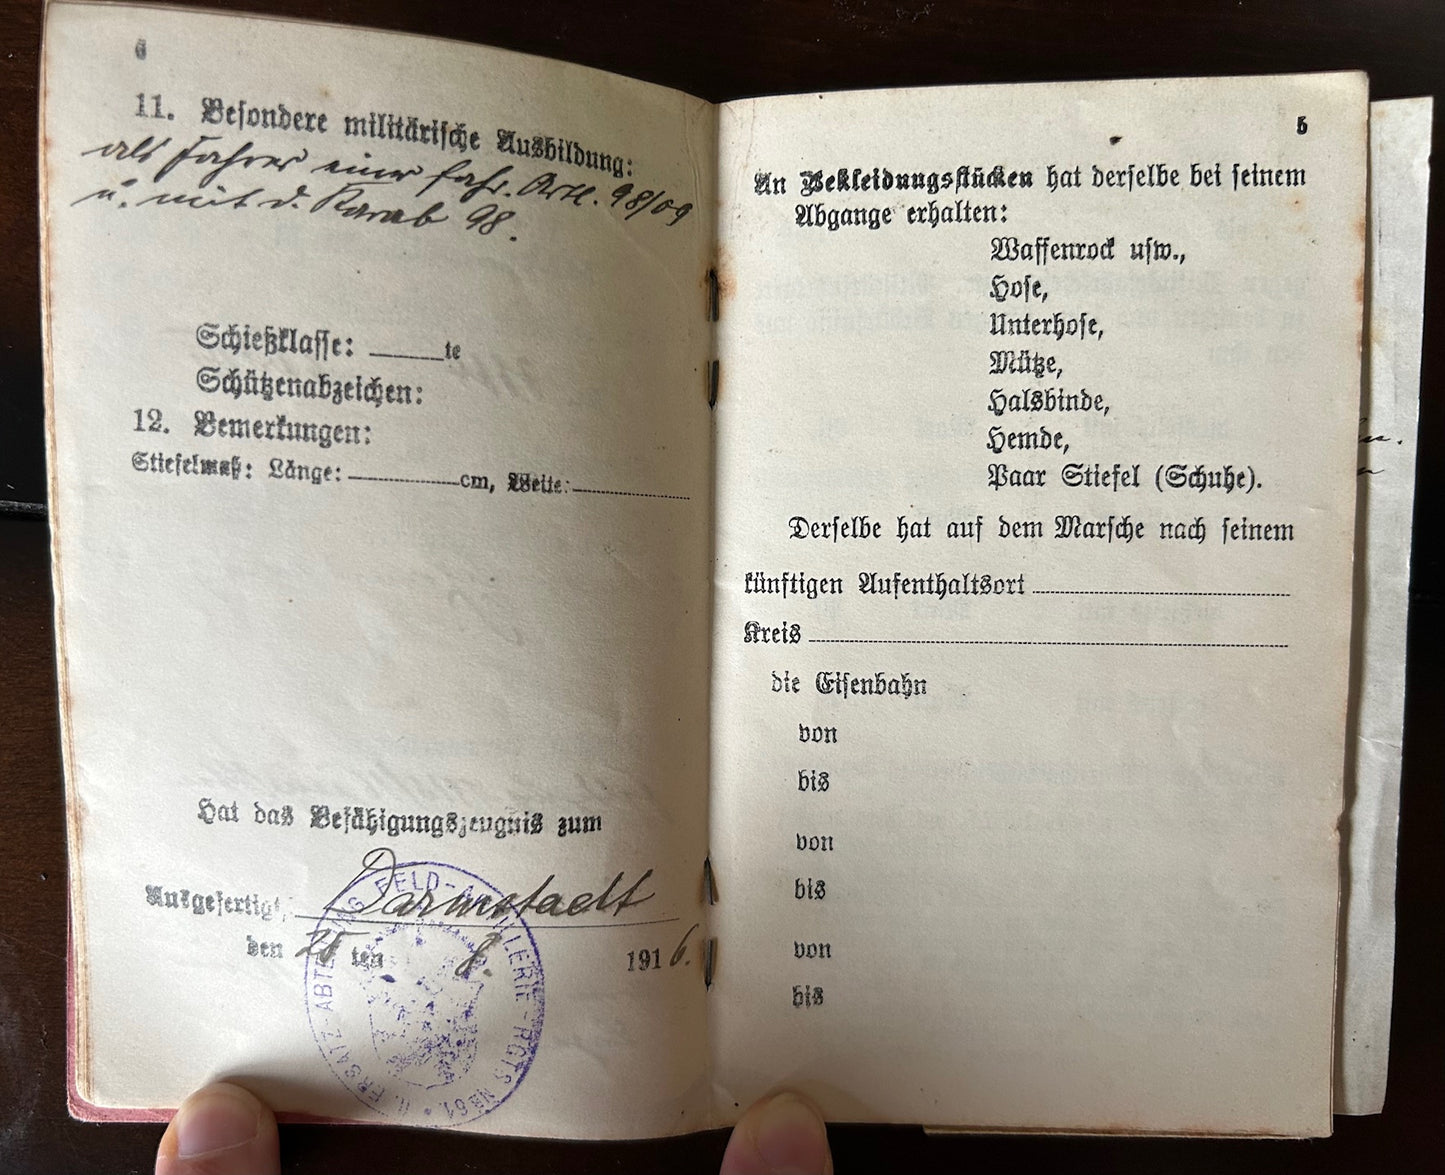 6
11. Besondere militärische Ausbildung:
als Fahrer einer fahr. Artl. 98/09
u. mit d. Karab 98.
Schießklasse: te
Schützenabzeichen:
12. Bemerkungen:
Stiefelmaß: Länge: cm, Weite:
Hat das Befähigungszeugnis zum
Ausgefertigt, Darmstadt
den 25 ten 8. 1916.
II. ERSATZ-ABTEILUNG FELD-ARTILLERIE-RGTS No 61.
5
An Bekleidungsstücken hat derselbe bei seinem
Abgange erhalten:
Waffenrock usw.,
Hose,
Unterhose,
Mütze,
Halsbinde,
Hemde,
Paar Stiefel (Schuhe).
Derselbe hat auf dem Marsche nach seinem
künftigen Aufenthaltsort
Kreis
die Eisenbahn
von
bis
von
bis
von
bis